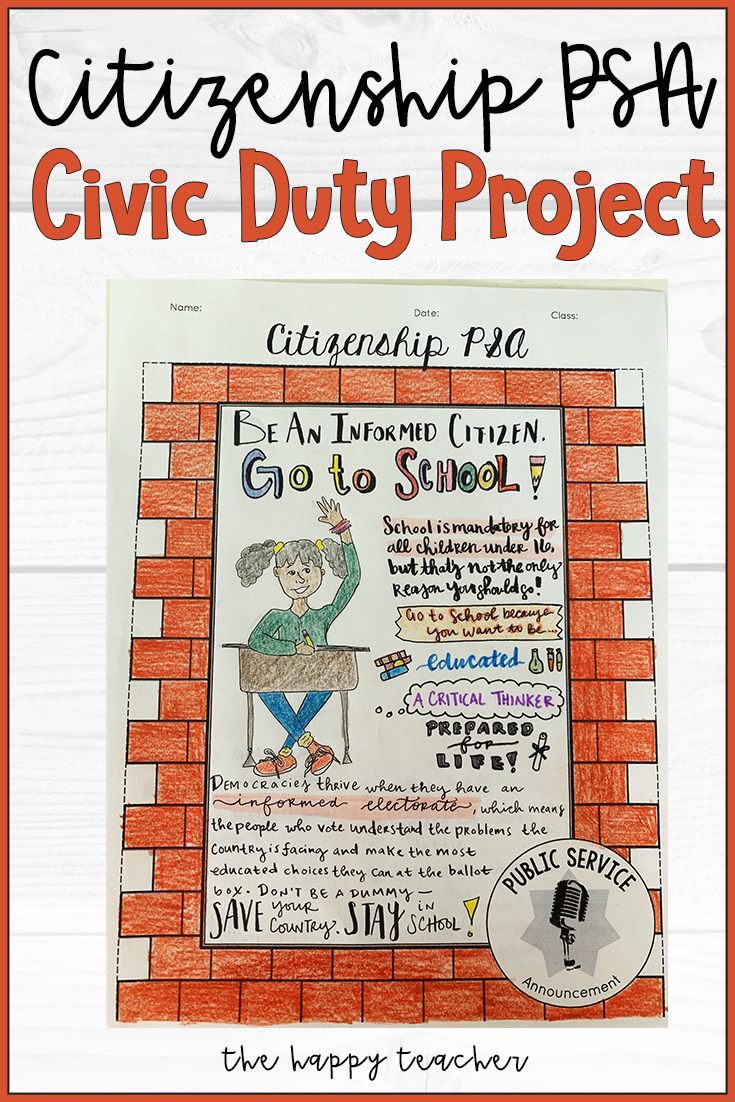 Citizenship PSA
Civic Duty Project
Name: Date: Class:
Citizenship PSA
BE AN INFORMED CITIZEN.
Go to SCHOOL!
School is mandatory for
all children under 16,
but that's not the only
reason you should go!
Go to School because
you want to be...
educated
A CRITICAL THINKER
PREPARED
for
LIFE!
DEMOCRACIES thrive when they have an
informed electorate, which means
the people who vote understand the problems the
country is facing and make the most
educated choices they can at the ballot
box. DON'T BE A DUMMY—
SAVE YOUR COUNTRY. STAY IN SCHOOL!
PUBLIC SERVICE
Announcement
the happy teacher